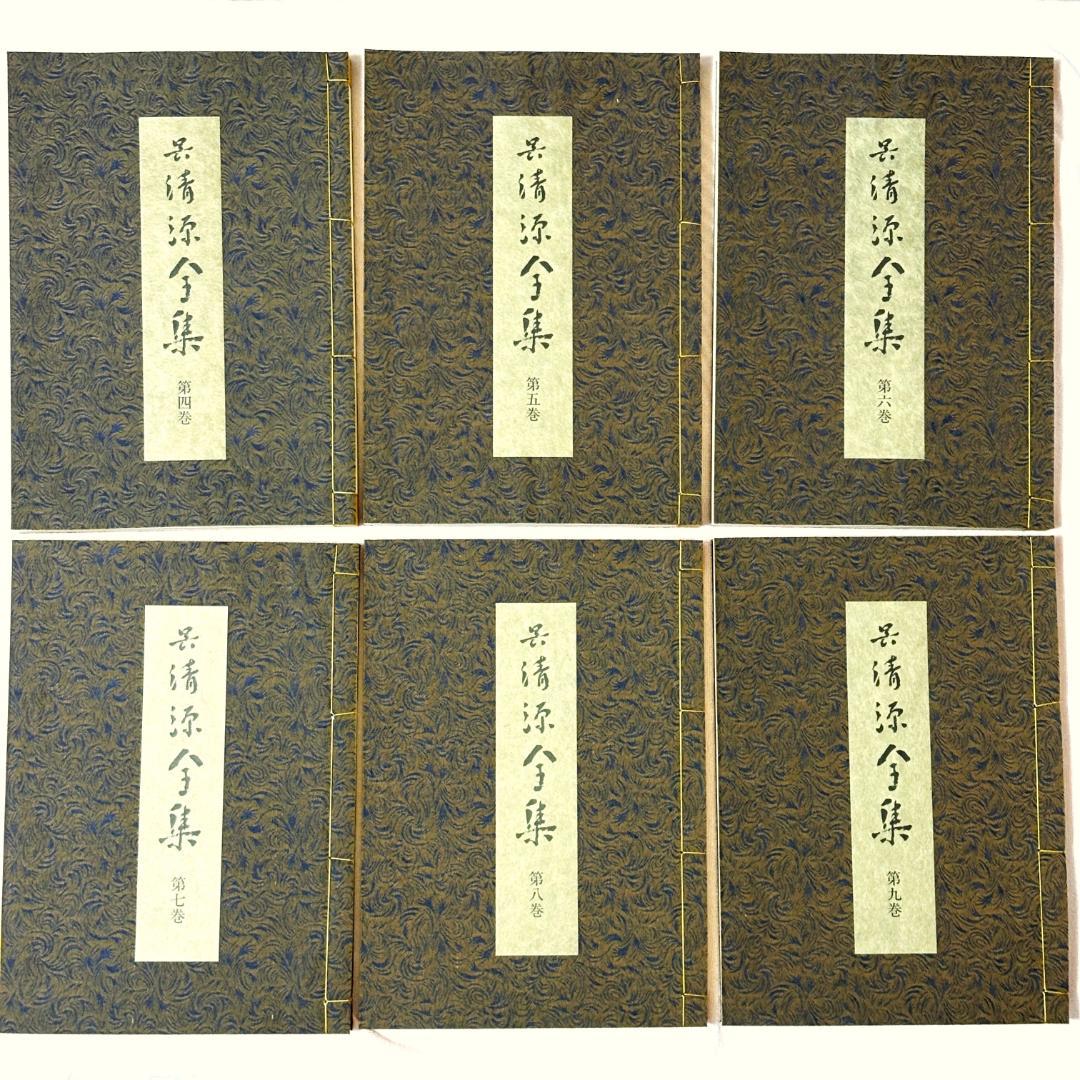 呉清源全集
第四巻
呉清源全集
第五巻
呉清源全集
第六巻
呉清源全集
第七巻
呉清源全集
第八巻
呉清源全集
第九巻